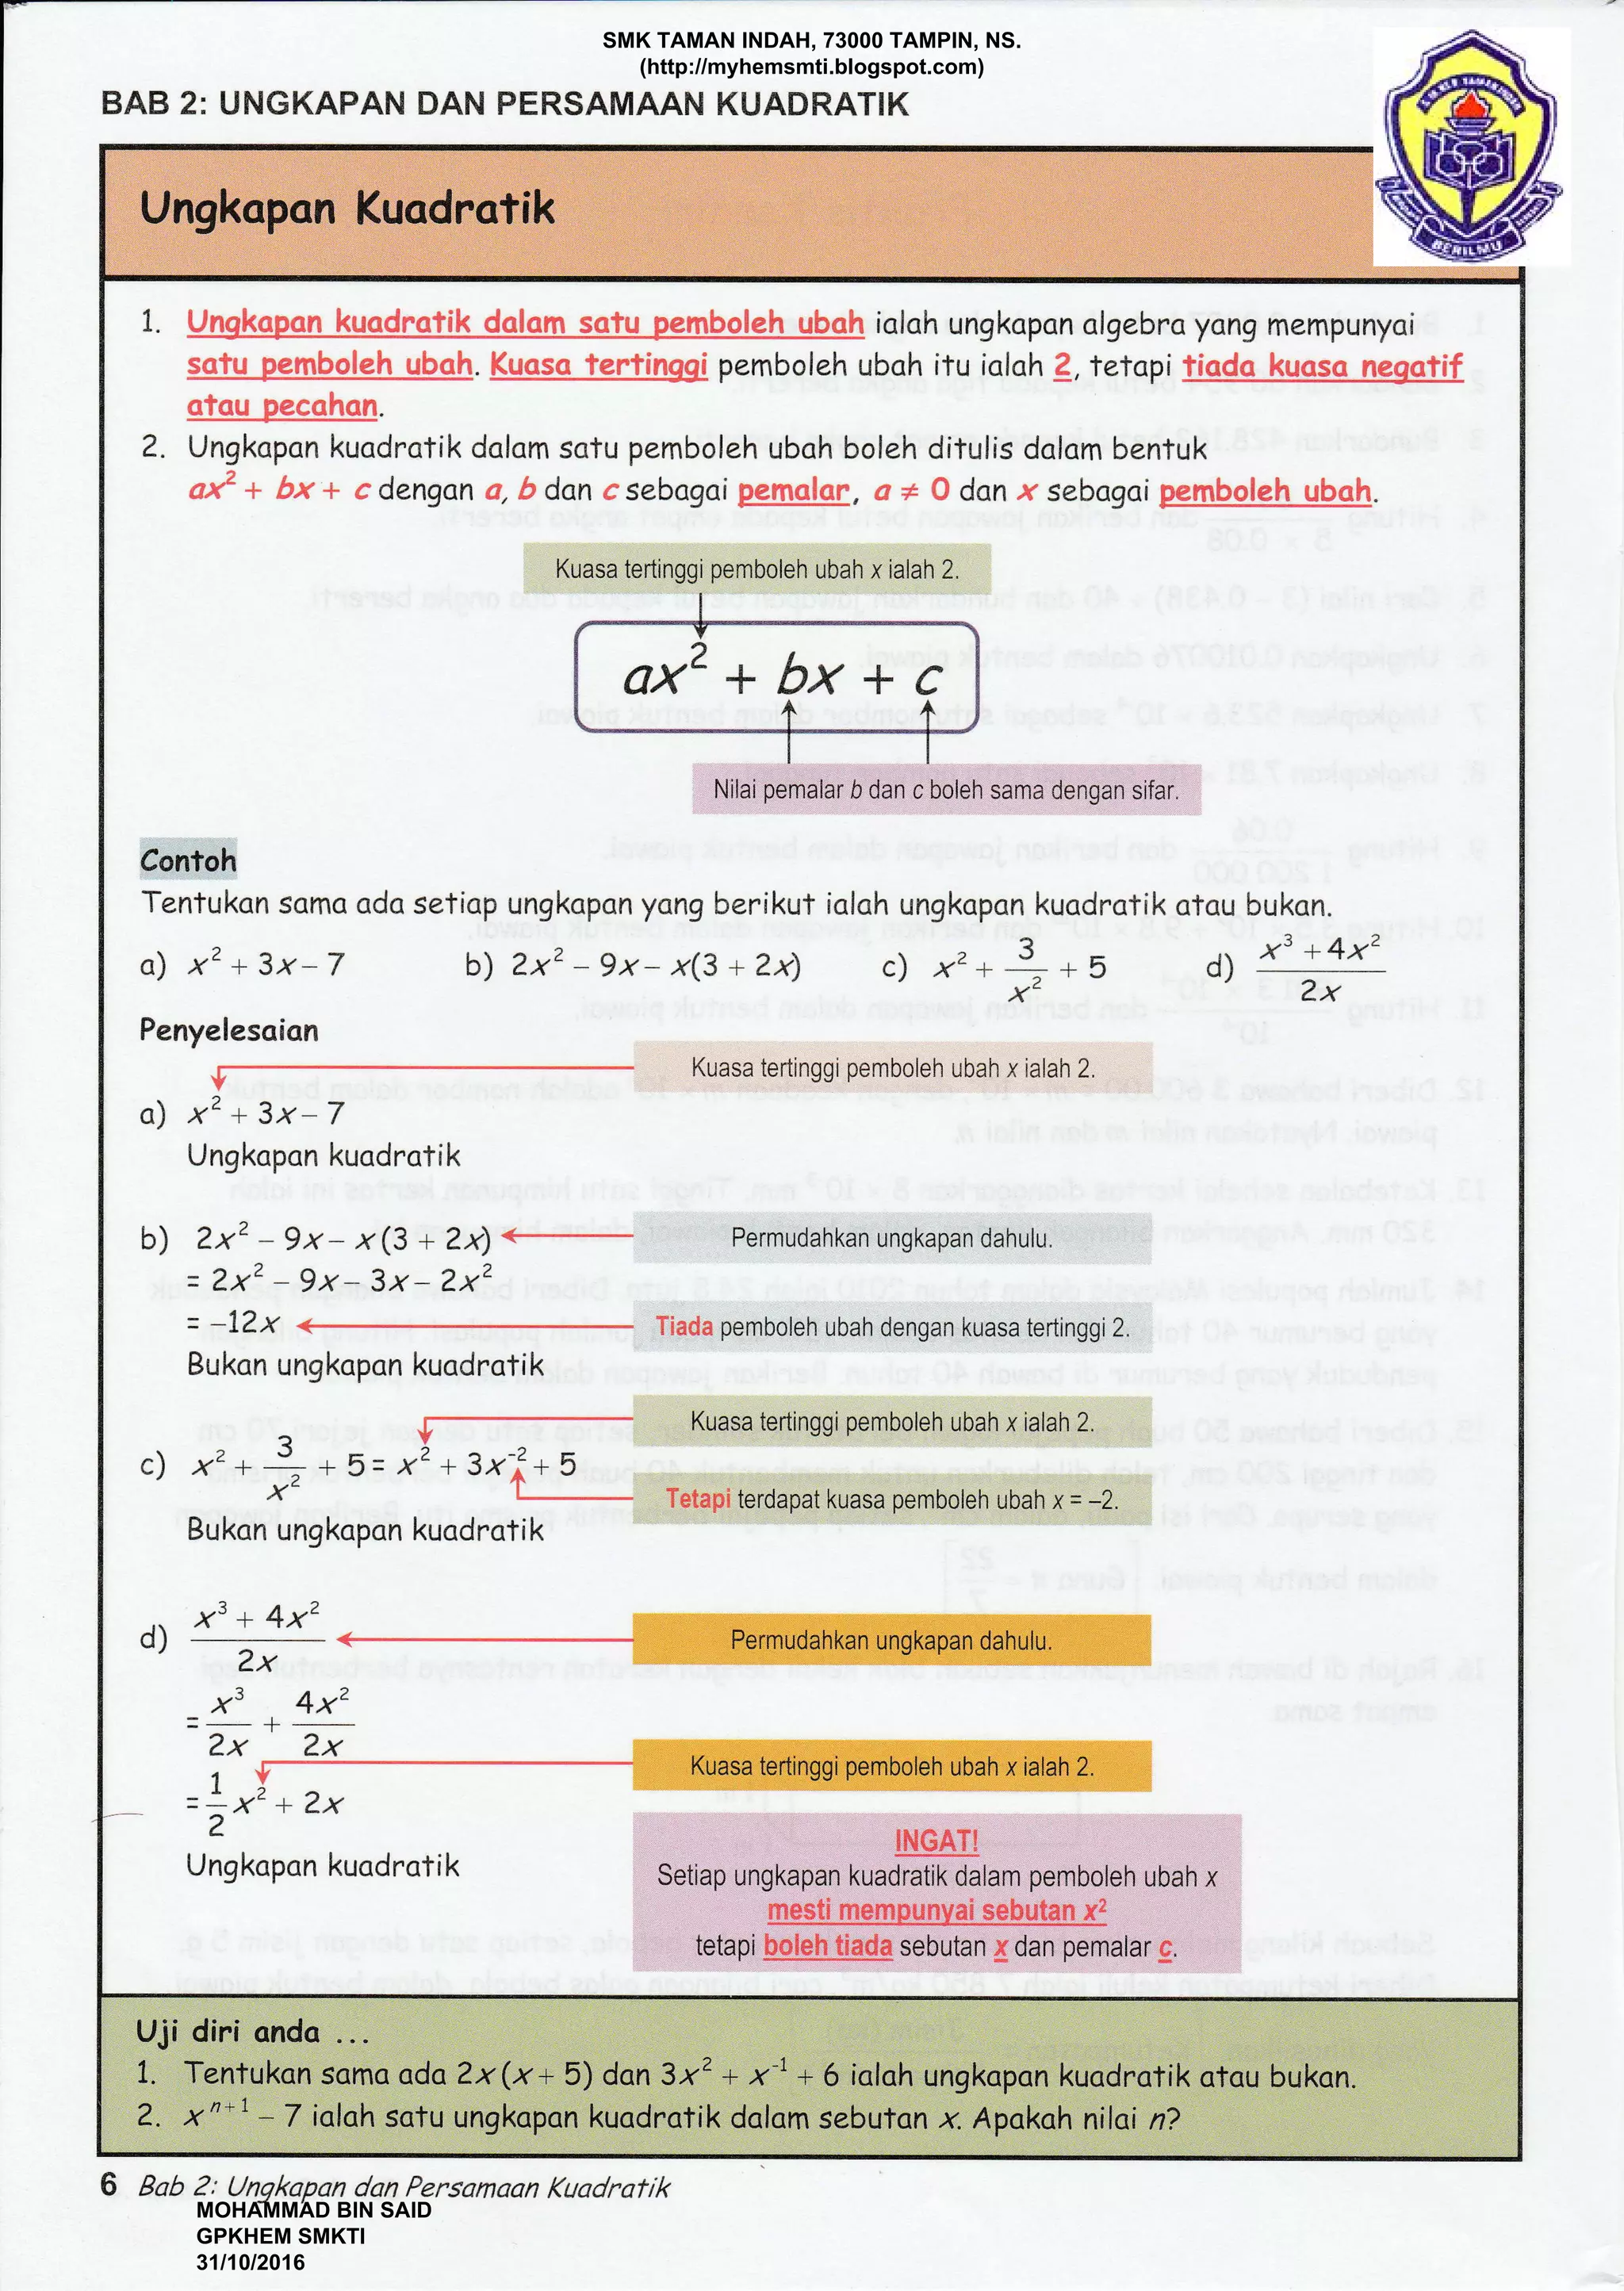 SMK TAMAN INDAH, 73000 TAMPIN, NS.
(http://myhemsmti.blogspot.com)
BAB 2: UNGKAPAN DAN PERSAMAAN KUADRATIK
BERILMU
Ungkapan Kuadratik
1. Ungkapan kuadratik dalam satu pemboleh ubah ialah ungkapan algebra yang mempunyai
satu pemboleh ubah. Kuasa tertinggi pemboleh ubah itu ialah 2, tetapi tiada kuasa negatif
atau pecahan.
2. Ungkapan kuadratik dalam satu pemboleh ubah boleh ditulis dalam bentuk
ax² + bx + c dengan a, b dan c sebagai pemalar, a ≠ 0 dan x sebagai pemboleh ubah.
Kuasa tertinggi pemboleh ubah x ialah 2.
ax² + bx + c
Nilai pemalar b dan c boleh sama dengan sifar.
Contoh
Tentukan sama ada setiap ungkapan yang berikut ialah ungkapan kuadratik atau bukan.
a) x² + 3x – 7 b) 2x² – 9x – x(3 + 2x) c) x² + 3/x² + 5 d) (x³ + 4x²)/2x
Penyelesaian
Kuasa tertinggi pemboleh ubah x ialah 2.
a) x² + 3x – 7
Ungkapan kuadratik
b) 2x² – 9x – x(3 + 2x) Permudahkan ungkapan dahulu.
= 2x² – 9x – 3x – 2x²
= –12x Tiada pemboleh ubah dengan kuasa tertinggi 2.
Bukan ungkapan kuadratik
Kuasa tertinggi pemboleh ubah x ialah 2.
c) x² + 3/x² + 5 = x² + 3x⁻² + 5
Tetapi terdapat kuasa pemboleh ubah x = –2.
Bukan ungkapan kuadratik
d) (x³ + 4x²)/2x Permudahkan ungkapan dahulu.
= x³/2x + 4x²/2x
Kuasa tertinggi pemboleh ubah x ialah 2.
= 1/2 x² + 2x
Ungkapan kuadratik
INGAT!
Setiap ungkapan kuadratik dalam pemboleh ubah x
mesti mempunyai sebutan x²
tetapi boleh tiada sebutan x dan pemalar c.
Uji diri anda ...
1. Tentukan sama ada 2x(x + 5) dan 3x² + x⁻¹ + 6 ialah ungkapan kuadratik atau bukan.
2. xⁿ⁺¹ – 7 ialah satu ungkapan kuadratik dalam sebutan x. Apakah nilai n?
6 Bab 2: Ungkapan dan Persamaan Kuadratik
MOHAMMAD BIN SAID
GPKHEM SMKTI
31/10/2016